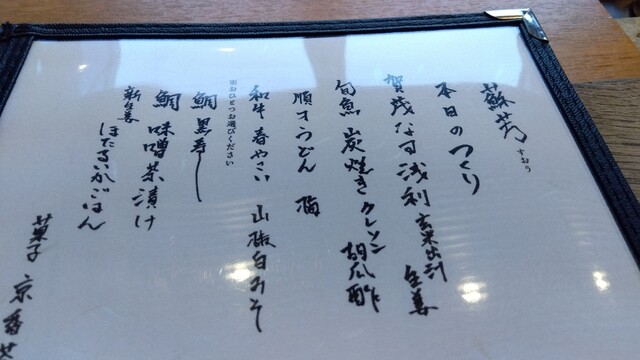 蘇芳 すおう
本日のつくり
賀茂なす 浅利 玄米出汁 生姜
旬魚 炭焼き クレソン 胡瓜酢
順才うどん 梅
和牛 春やさい 山椒白みそ
※おひとつお選びください
鯛 黒寿し
鯛 味噌茶漬け
新生姜 ほたるいかごはん
菓子 京番茶